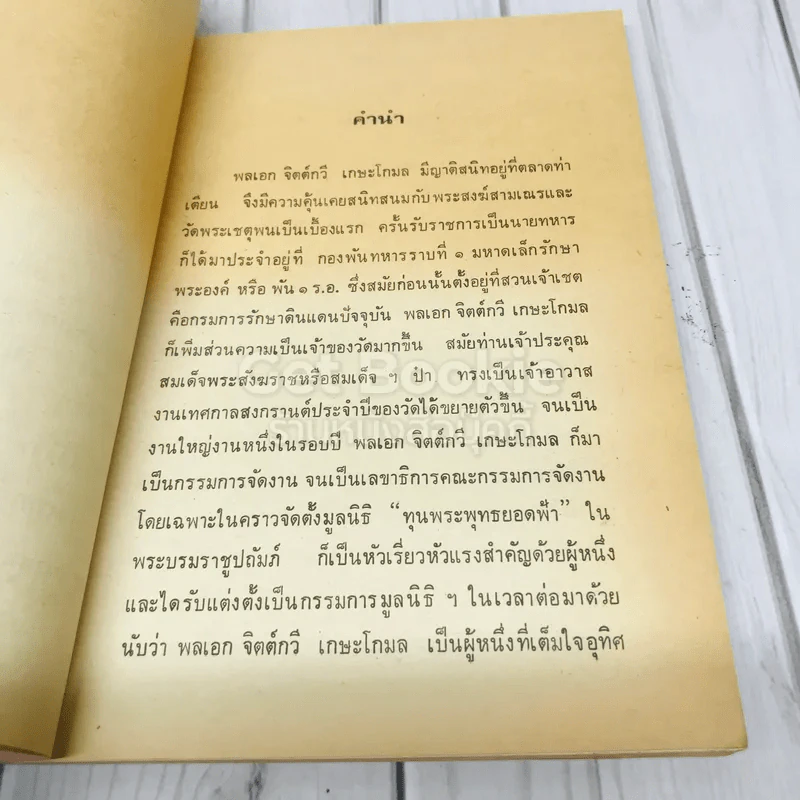 คำนำ
พลเอก จิตต์กวี เกษะโกมล มีญาติสนิทอยู่ที่ตลาดท่า
เตียน จึงมีความคุ้นเคยสนิทสนมกับพระสงฆ์สามเณรและ
วัดพระเชตุพนเป็นเบื้องแรก ครั้นรับราชการเป็นนายทหาร
ก็ได้มาประจำอยู่ที่ กองพันทหารราบที่ ๑ มหาดเล็กรักษา
พระองค์ หรือ พัน ๑ ร.อ. ซึ่งสมัยก่อนนั้นตั้งอยู่ที่สวนเจ้าเชต
คือกรมการรักษาดินแดนปัจจุบัน พลเอก จิตต์กวี เกษะโกมล
ก็เพิ่มส่วนความเป็นเจ้าของวัดมากขึ้น สมัยท่านเจ้าประคุณ
สมเด็จพระสังฆราชหรือสมเด็จ ฯ ป๋า ทรงเป็นเจ้าอาวาส
งานเทศกาลสงกรานต์ประจำปีของวัดได้ขยายตัวขึ้น จนเป็น
งานใหญ่งานหนึ่งในรอบปี พลเอก จิตต์กวี เกษะโกมล ก็มา
เป็นกรรมการจัดงาน จนเป็นเลขาธิการคณะกรรมการจัดงาน
โดยเฉพาะในคราวจัดตั้งมูลนิธิ “ทุนพระพุทธยอดฟ้า” ใน
พระบรมราชูปถัมภ์ ก็เป็นหัวเรี่ยวหัวแรงสำคัญด้วยผู้หนึ่ง
และได้รับแต่งตั้งเป็นกรรมการมูลนิธิ ฯ ในเวลาต่อมาด้วย
นับว่า พลเอก จิตต์กวี เกษะโกมล เป็นผู้หนึ่งที่เต็มใจอุทิศ